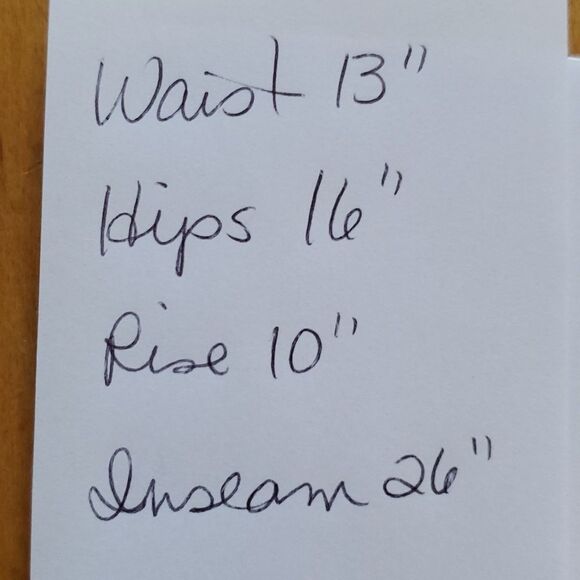 Waist 13"
Hips 16"
Rise 10"
Inseam 26"